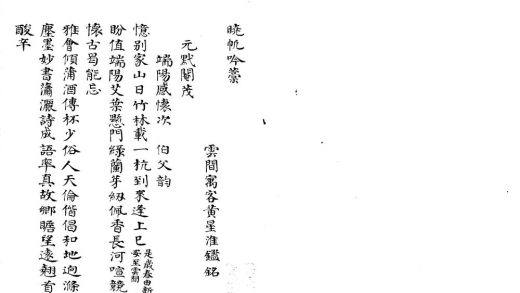 曉帆吟藁
雲間寓客黃星淮鑑銘
元黓閹茂
端陽感懷次 伯父韵
憶別家山日竹林載一杭到來逢上巳是歲春由新安至雲間
盼值端陽艾葉懸門綠蘭芽紉佩香長河喧競
懷古曷能忘
雅會傾蒲酒傳杯少俗人天倫偕倡和地迥滌
塵墨妙書瀟灑詩成語率真故鄉瞻望遠翹首
酸辛